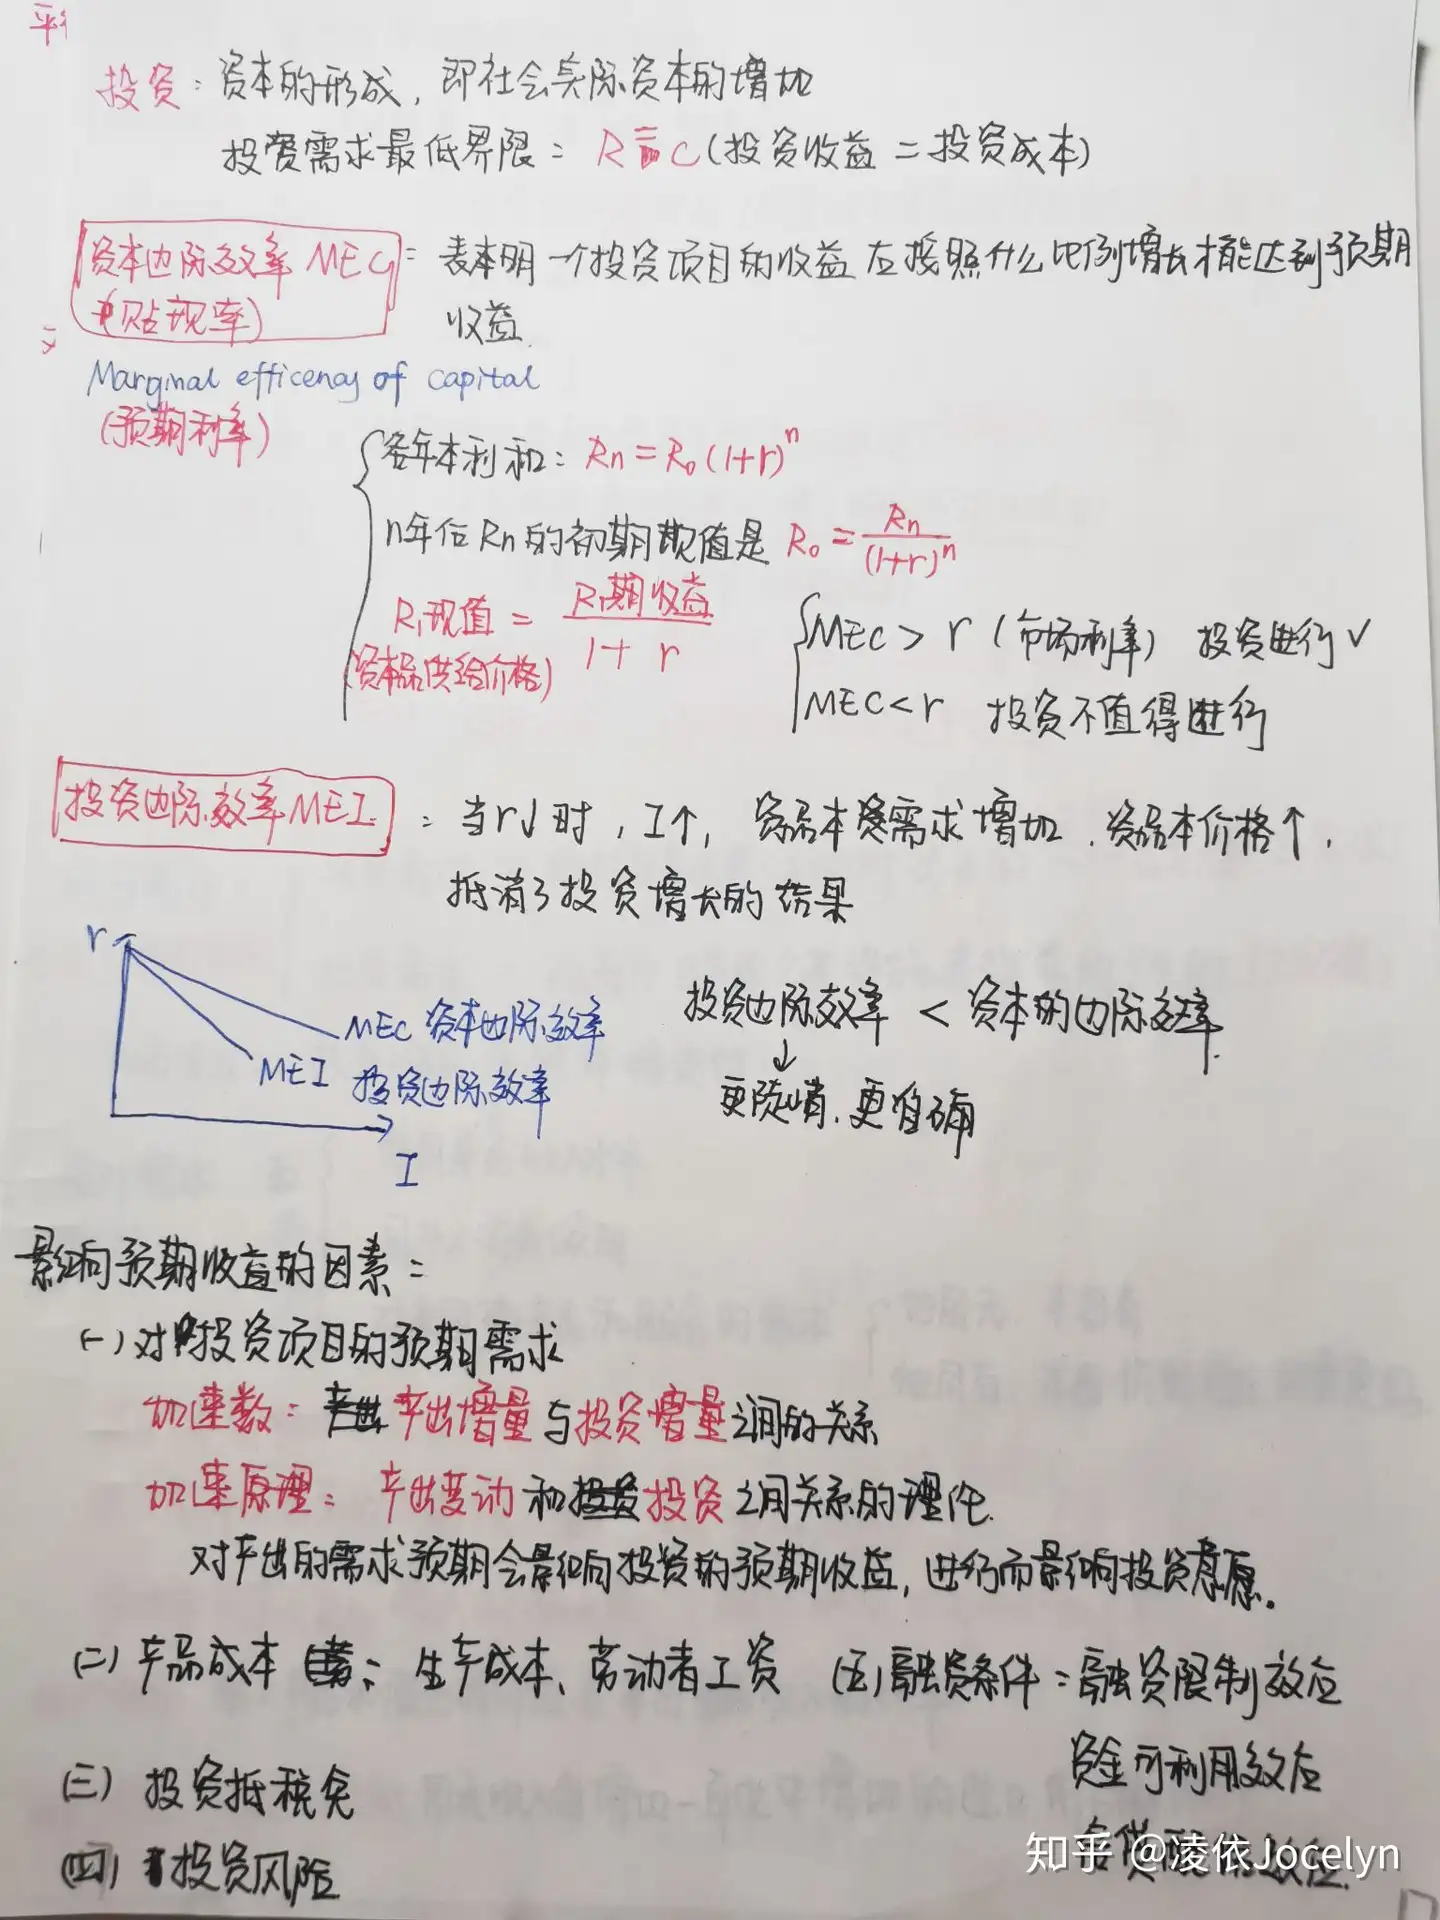 投资：资本的形成，即社会实际资本的增加
投资需求最低界限：R=C(投资收益=投资成本)
资本边际效率 MEC：表明一个投资项目的收益应按照什么比例增长才能达到预期
(贴现率)
收益.
Marginal efficency of capital
(预期利率)
各年本利和：Rn=R₀(1+r)ⁿ
n年后Rn的初期现值是 R₀=Rn/(1+r)ⁿ
R₁现值=R₁期收益/1+r
(资本品供给价格)
MEC>r (市场利率) 投资进行√
MEC<r 投资不值得进行
投资边际效率MEI.：当r↓时，I↑，资本品需求增加.资本品价格↑，
抵消了投资增长的结果
r
MEC 资本边际效率
MEI 投资边际效率
I
投资边际效率<资本的边际效率.
↓
更陡峭.更准确
影响预期收益的因素：
(一)对投资项目的预期需求
加速数：产出增量与投资增量之间的关系
加速原理：产出变动和投资之间关系的理论.
对产出的需求预期会影响投资的预期收益，进而影响投资意愿。
(二)产品成本：生产成本、劳动者工资
(三)投资抵税免
(四)投资风险
(五)融资条件：融资限制效应
资金可利用效应
知乎 @凌依Jocelyn